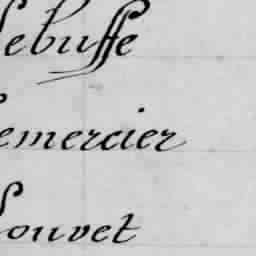 lebuffe
lemercier
louvet